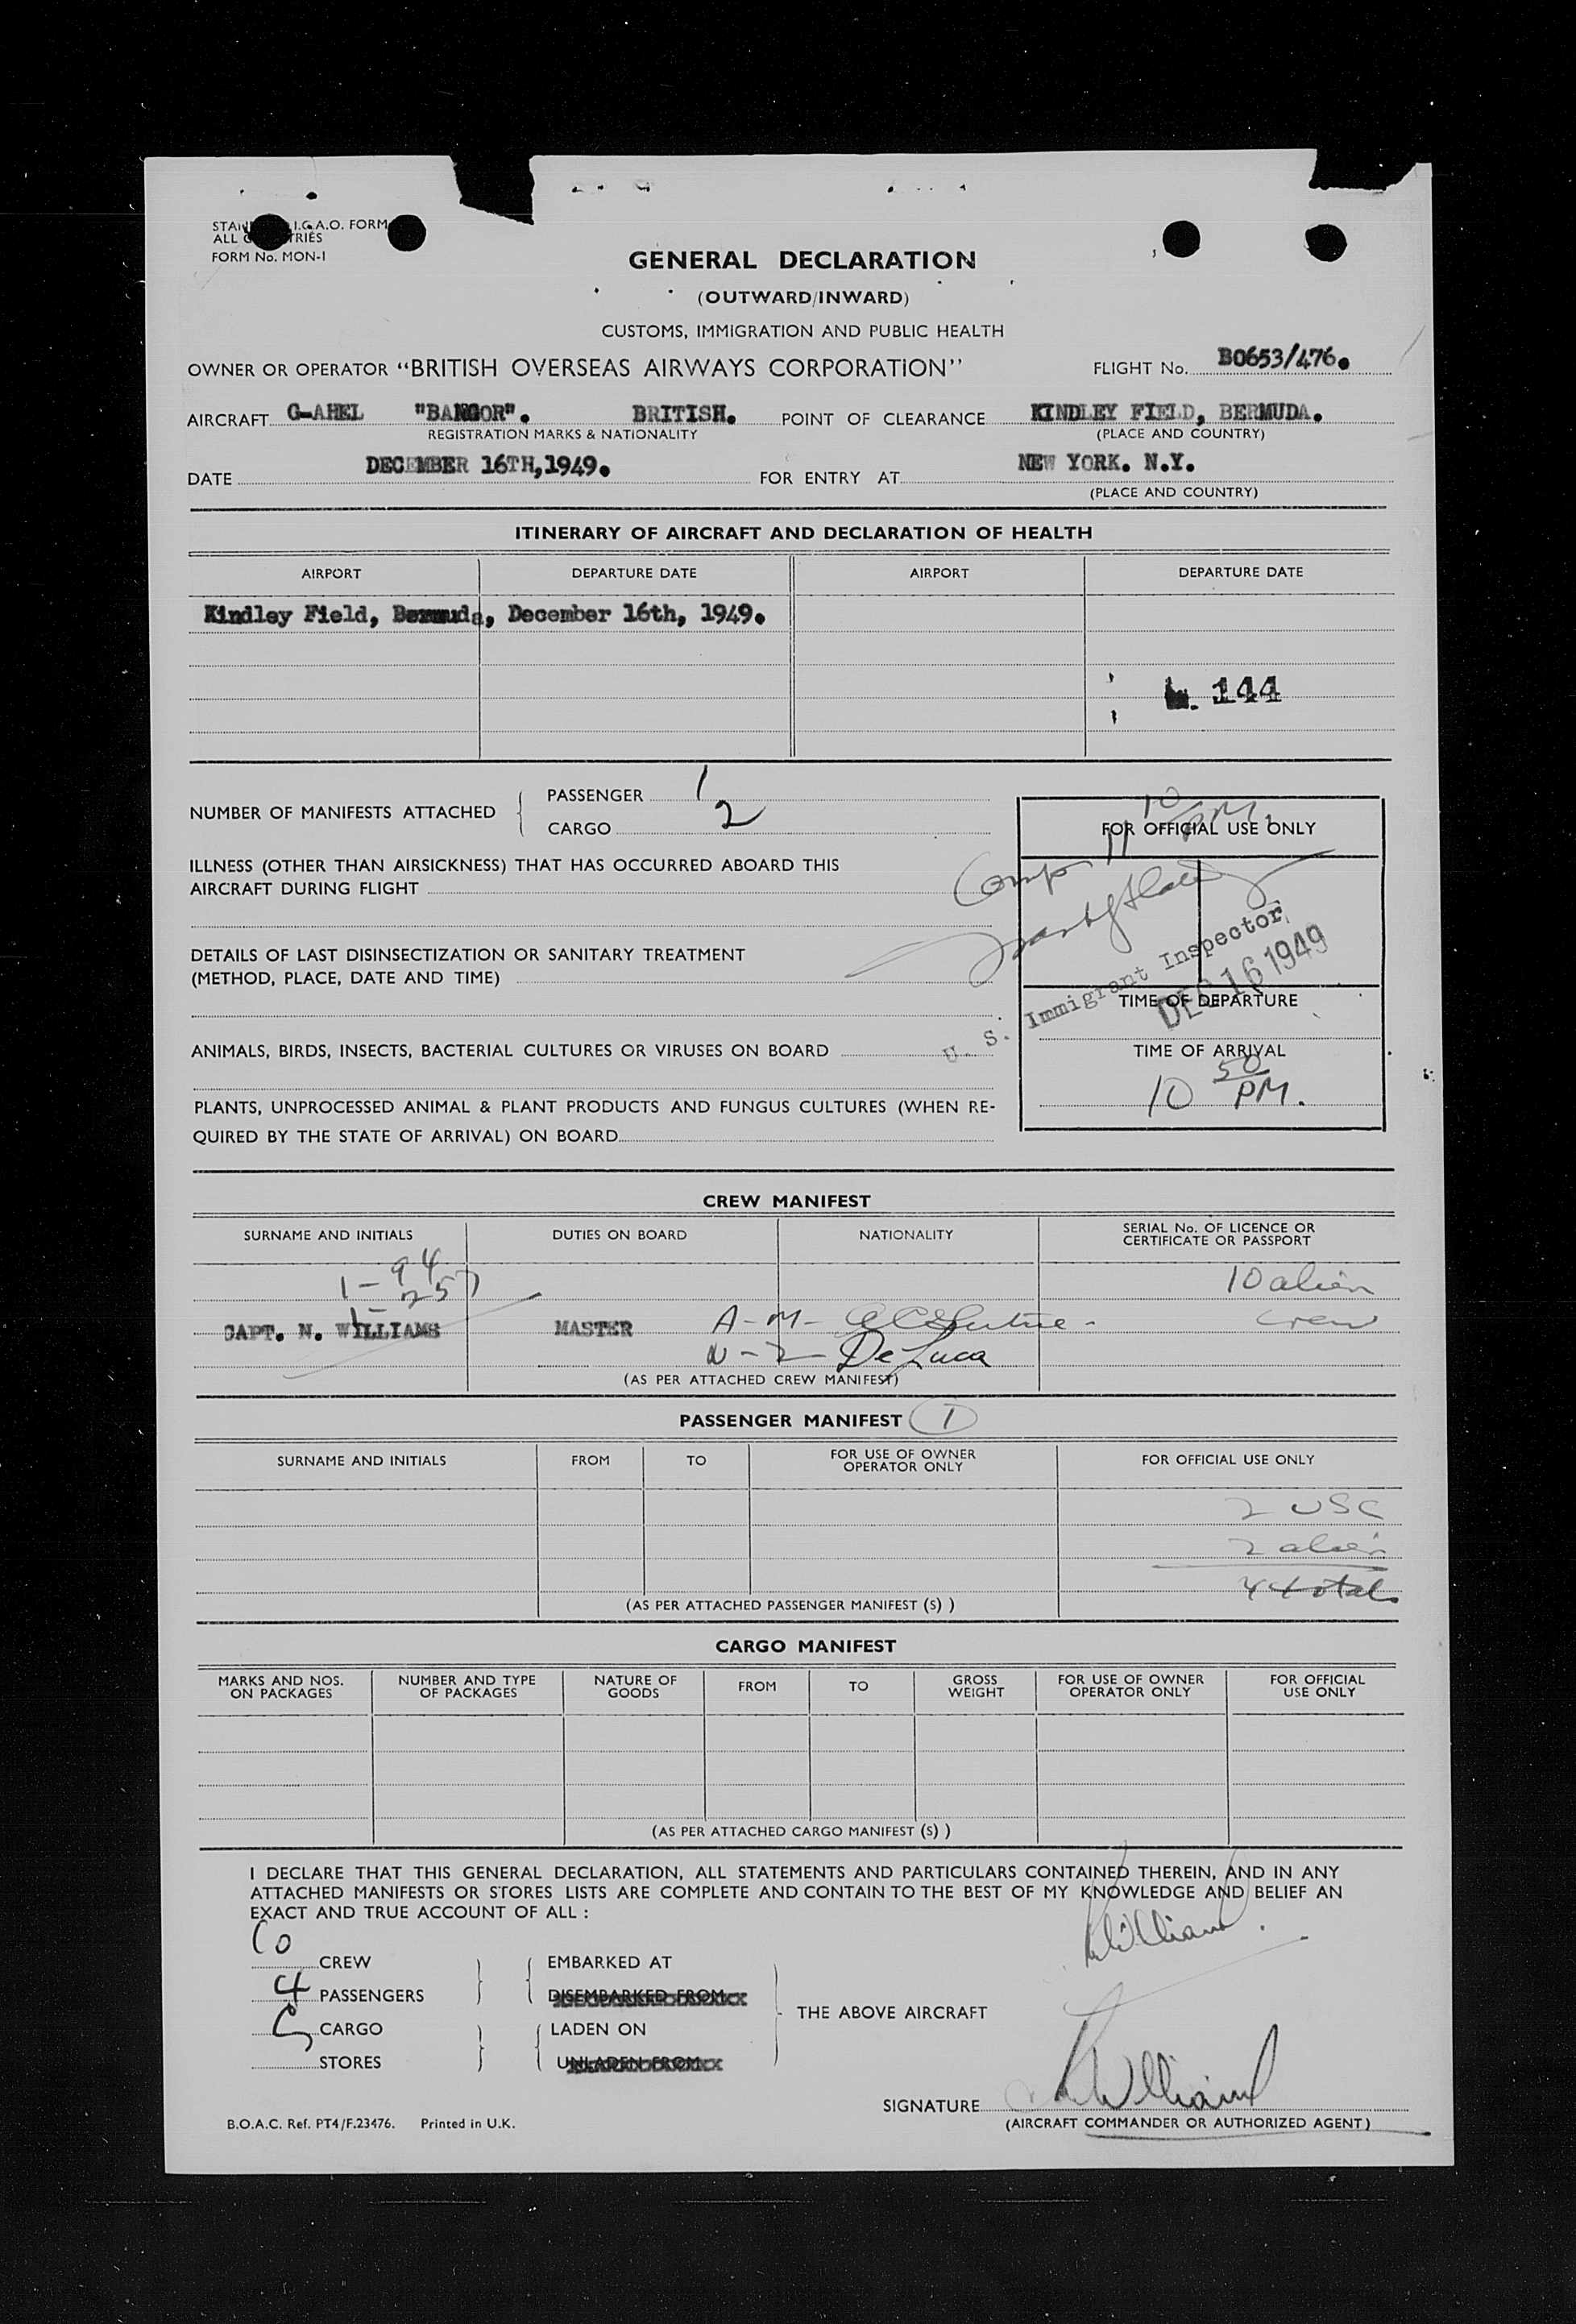 I.C.A.O. FORM
ALL
FORM No. MON-1
GENERAL DECLARATION
(OUTWARD/INWARD)
CUSTOMS, IMMIGRATION AND PUBLIC HEALTH
OWNER OR OPERATOR "BRITISH OVERSEAS AIRWAYS CORPORATION" FLIGHT No. B0653/476.
AIRCRAFT G-AHEL "BANGOR". BRITISH. POINT OF CLEARANCE KINDLEY FIELD, BERMUDA.
REGISTRATION MARKS & NATIONALITY (PLACE AND COUNTRY)
DATE DECEMBER 16TH,1949. FOR ENTRY AT NEW YORK. N.Y.
(PLACE AND COUNTRY)
ITINERARY OF AIRCRAFT AND DECLARATION OF HEALTH
AIRPORT DEPARTURE DATE AIRPORT DEPARTURE DATE
Kindley Field, Bermuda, December 16th, 1949.
144
NUMBER OF MANIFESTS ATTACHED
PASSENGER 1
CARGO 2
10
11 PM.
FOR OFFICIAL USE ONLY
ILLNESS (OTHER THAN AIRSICKNESS) THAT HAS OCCURRED ABOARD THIS
AIRCRAFT DURING FLIGHT
Comp
DETAILS OF LAST DISINSECTIZATION OR SANITARY TREATMENT
(METHOD, PLACE, DATE AND TIME)
U. S. Immigrant Inspector
DEC 16 1949
TIME OF DEPARTURE
ANIMALS, BIRDS, INSECTS, BACTERIAL CULTURES OR VIRUSES ON BOARD
TIME OF ARRIVAL
10 50 PM.
PLANTS, UNPROCESSED ANIMAL & PLANT PRODUCTS AND FUNGUS CULTURES (WHEN RE-
QUIRED BY THE STATE OF ARRIVAL) ON BOARD
CREW MANIFEST
SURNAME AND INITIALS DUTIES ON BOARD NATIONALITY SERIAL No. OF LICENCE OR
CERTIFICATE OR PASSPORT
1-94
1-257
10 alien
CAPT. N. WILLIAMS MASTER A-M- crew
N-2- De Luca
(AS PER ATTACHED CREW MANIFEST)
PASSENGER MANIFEST 1
SURNAME AND INITIALS FROM TO FOR USE OF OWNER
OPERATOR ONLY FOR OFFICIAL USE ONLY
2 USC
2 alien
4 total
(AS PER ATTACHED PASSENGER MANIFEST (S) )
CARGO MANIFEST
MARKS AND NOS.
ON PACKAGES NUMBER AND TYPE
OF PACKAGES NATURE OF
GOODS FROM TO GROSS
WEIGHT FOR USE OF OWNER
OPERATOR ONLY FOR OFFICIAL
USE ONLY
(AS PER ATTACHED CARGO MANIFEST (S) )
I DECLARE THAT THIS GENERAL DECLARATION, ALL STATEMENTS AND PARTICULARS CONTAINED THEREIN, AND IN ANY
ATTACHED MANIFESTS OR STORES LISTS ARE COMPLETE AND CONTAIN TO THE BEST OF MY KNOWLEDGE AND BELIEF AN
EXACT AND TRUE ACCOUNT OF ALL :
Williams
10 CREW EMBARKED AT
4 PASSENGERS DISEMBARKED FROM
THE ABOVE AIRCRAFT
CARGO LADEN ON
STORES UNLADEN FROM
SIGNATURE Williams
(AIRCRAFT COMMANDER OR AUTHORIZED AGENT)
B.O.A.C. Ref. PT4/F.23476. Printed in U.K.